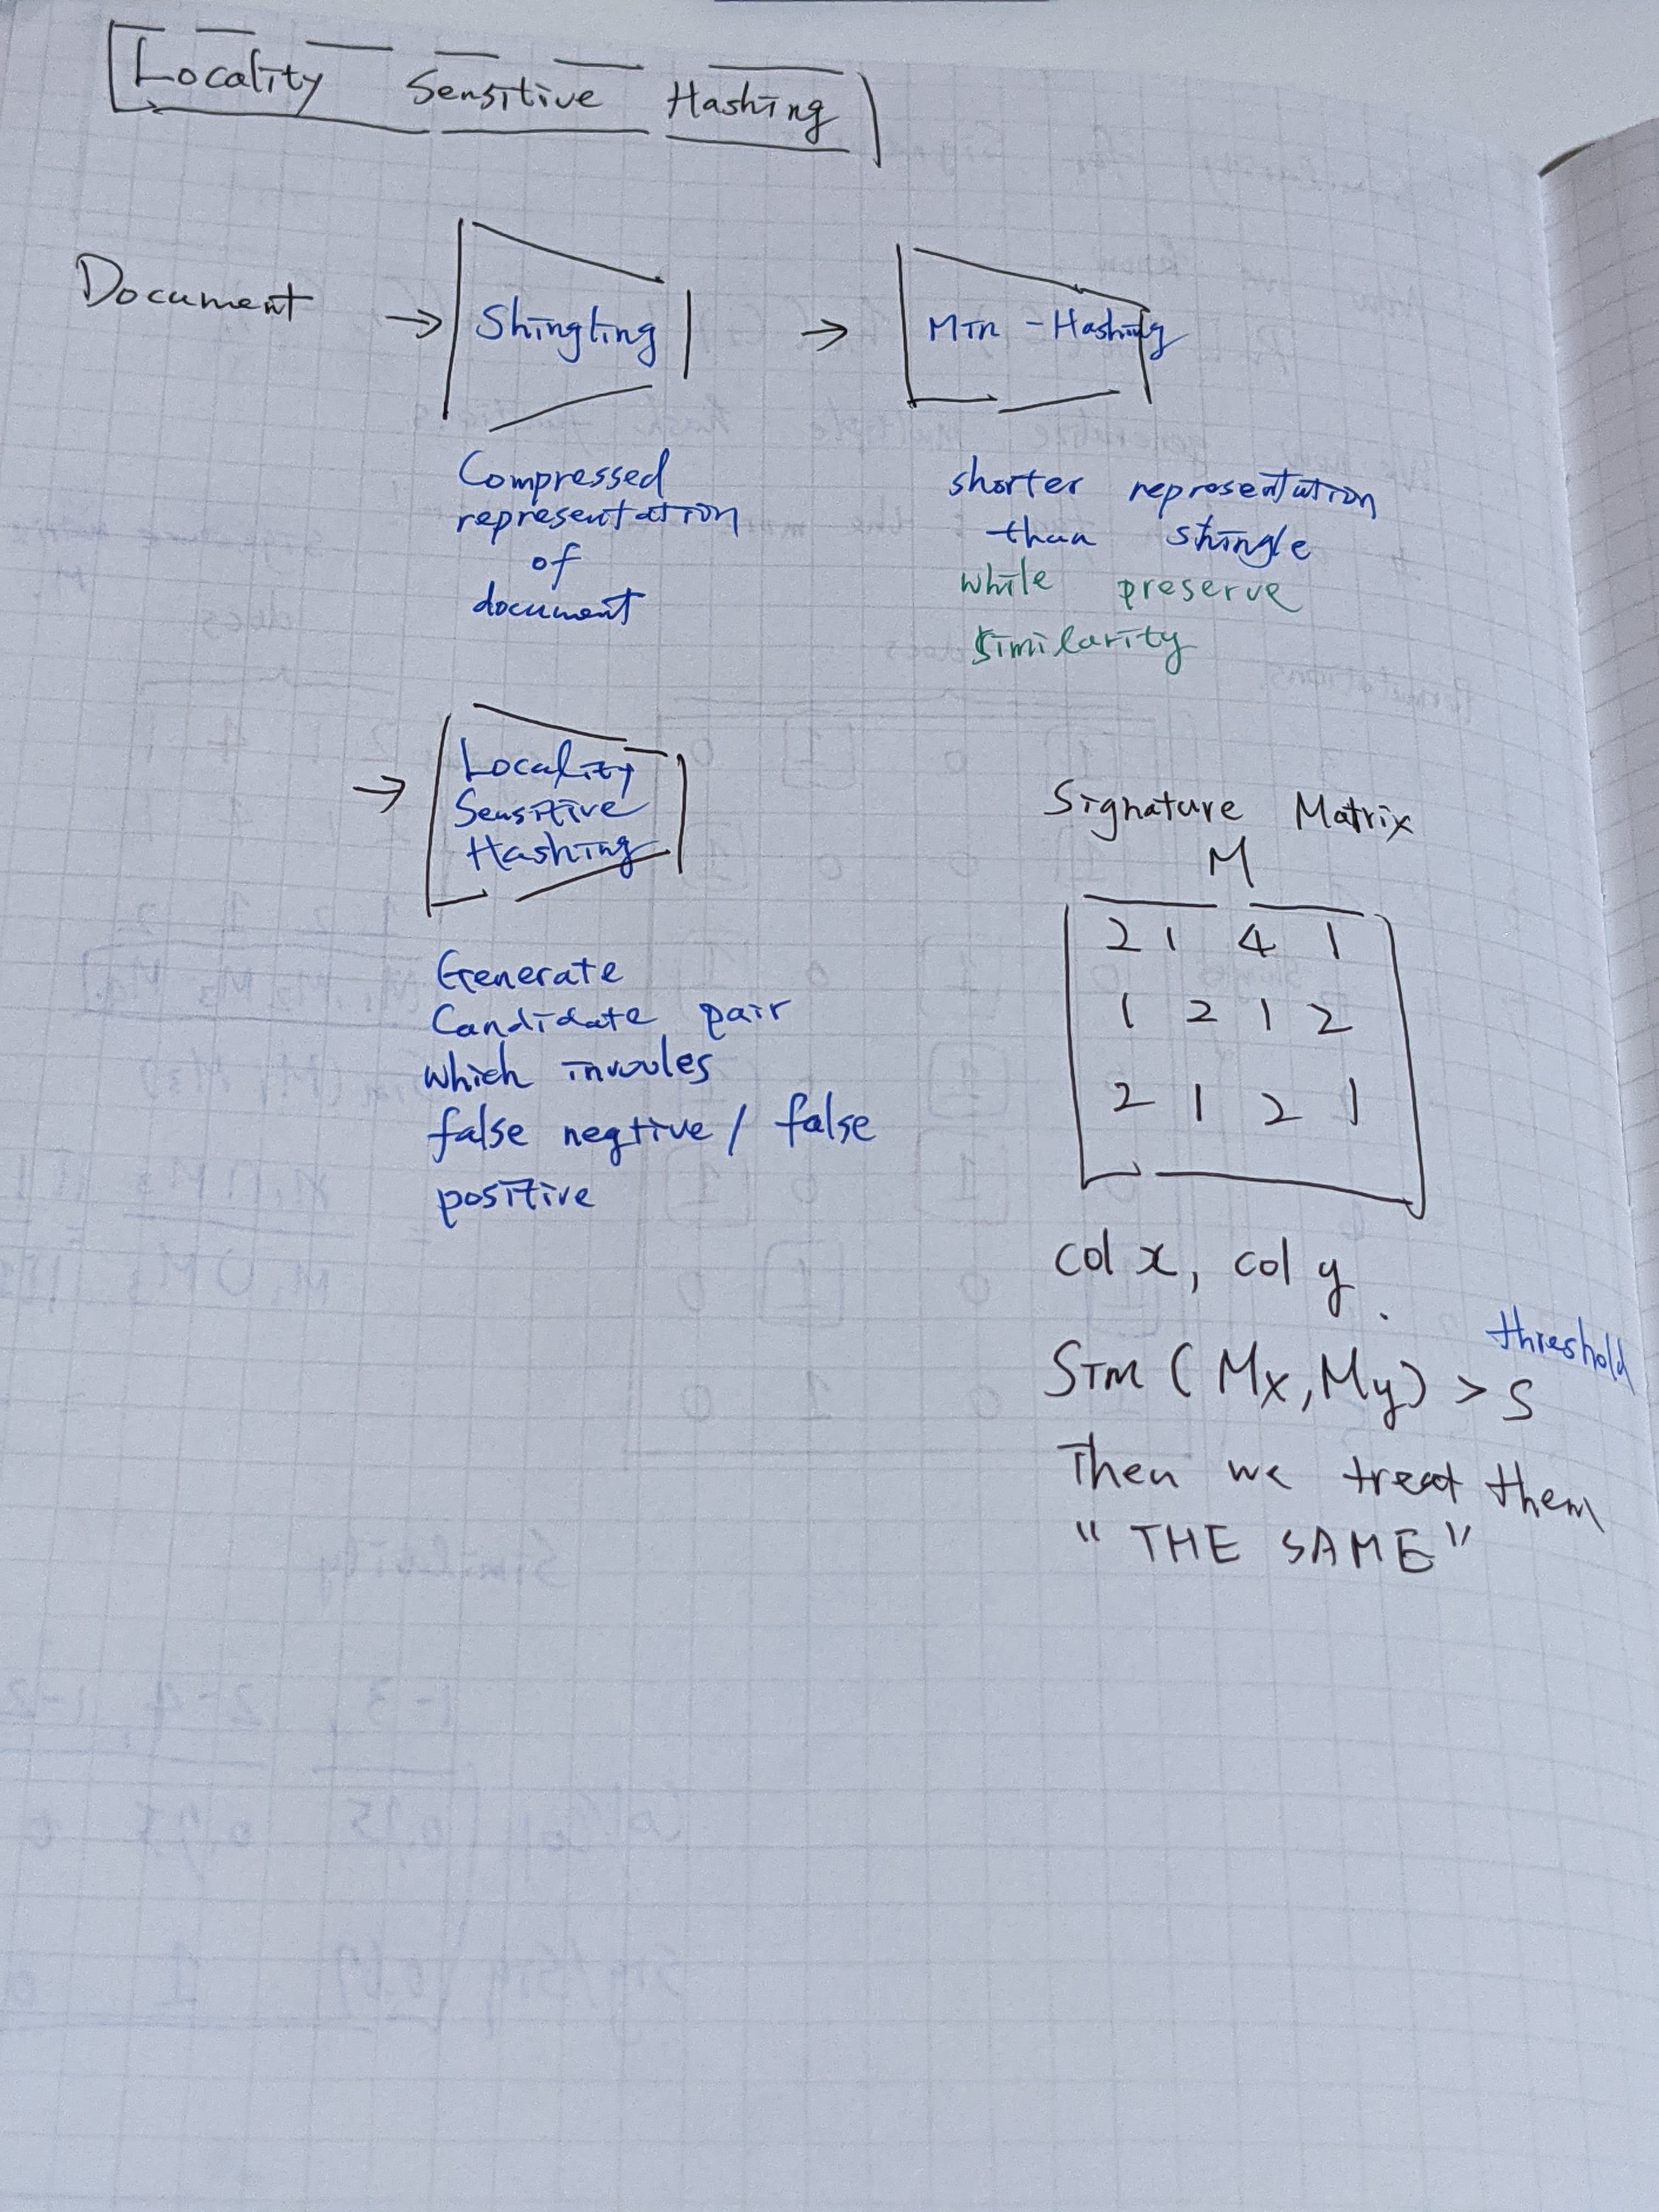 Locality Sensitive Hashing
Document → Shingling → Min-Hashing
Compressed
representation
of
document
shorter representation
than shingle
while preserve
similarity
→ Locality
Sensitive
Hashing
Generate
Candidate pair
which invovles
false negtive / false
positive
Signature Matrix
M
2 1 4 1
1 2 1 2
2 1 2 1
col x, col y.
threshold
Sim (Mx, My) > s
Then we treat them
"THE SAME"